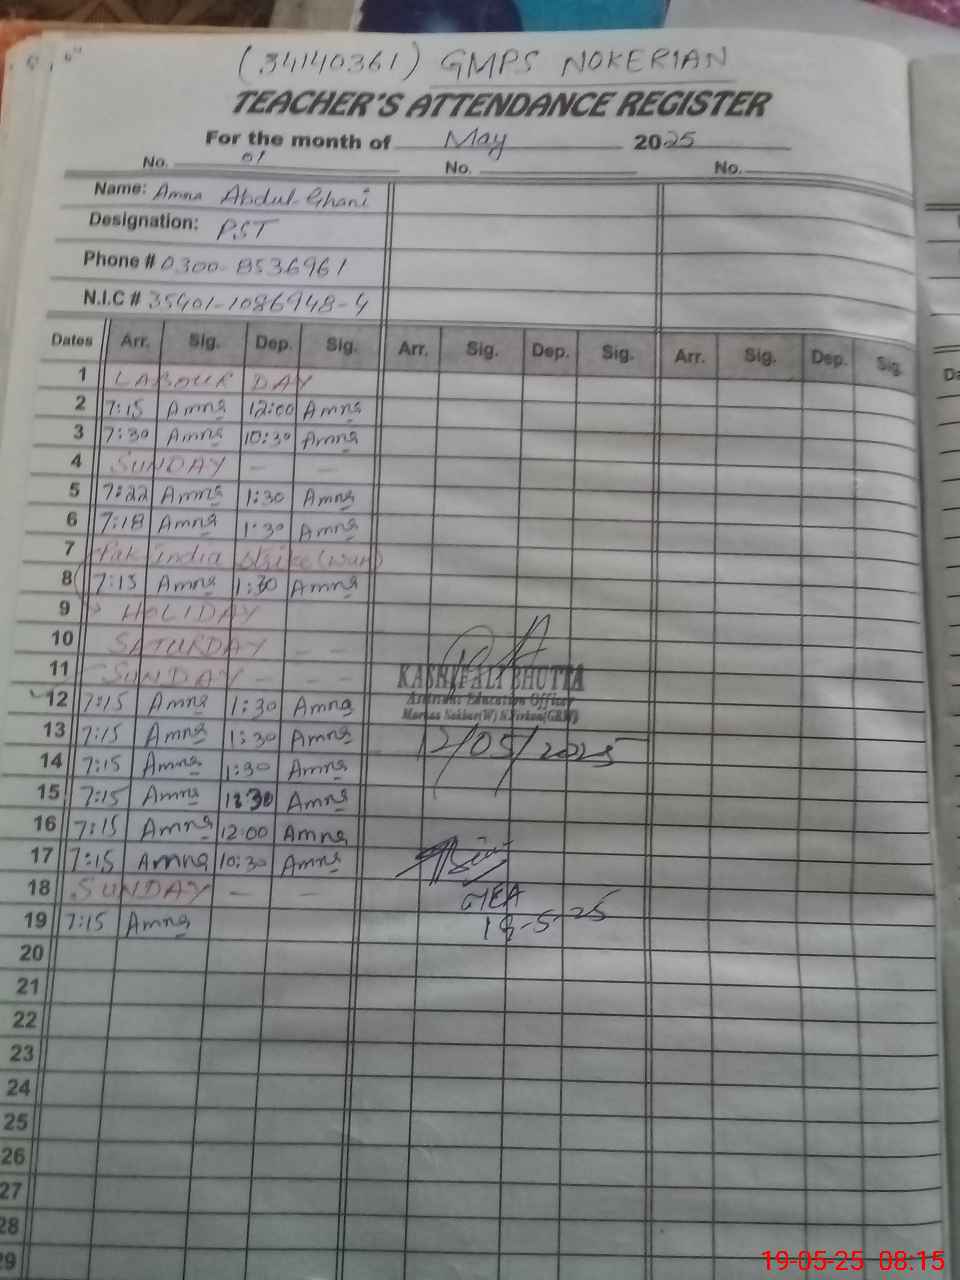 (34140361) GMPS NOKERIAN
TEACHER'S ATTENDANCE REGISTER
For the month of May 2025
No. 01 No. No.
Name: Amna Abdul Ghani
Designation: PST
Phone # 0300-8536961
N.I.C # 35401-1086948-4
Dates Arr. Sig. Dep. Sig. Arr. Sig. Dep. Sig. Arr. Sig. Dep. Sig.
1 LABOUR DAY
2 7:15 Amna 12:00 Amna
3 7:30 Amna 10:30 Amna
4 SUNDAY — —
5 7:22 Amna 1:30 Amna
6 7:18 Amna 1:30 Amna
7 Pak India Strike (war)
8 7:15 Amna 1:30 Amna
9 HOLIDAY
10 SATURDAY — —
11 SUNDAY — —
KASHIF ALI BHUTTA
Assistant Education Officer
12 7:15 Amna 1:30 Amna
13 7:15 Amna 1:30 Amna 12/05/2025
14 7:15 Amna 1:30 Amna
15 7:15 Amna 30 Amna
16 7:15 Amna 12:00 Amna
17 7:15 Amna 10:30 Amna
18 SUNDAY — —
19 7:15 Amna -5-25
20
21
22
23
24
25
26
27
28
29
19-05-25 08:15